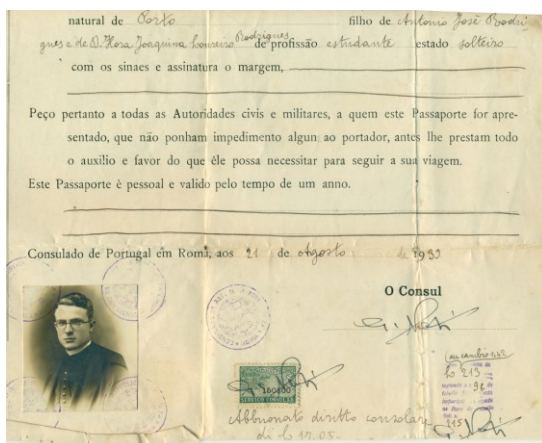 natural de Porto filho de Antonio José Rodri-
gues e de D. Flora Joaquina Loureiro Rodrigues de profissão estudante estado solteiro
com os sinaes e assinatura o margem,
Peço pertanto a todas as Autoridades civis e militares, a quem este Passaporte for apre-
sentado, que não ponham impedimento algun ao portador, antes lhe prestam todo
o auxilio e favor do que êle possa necessitar para seguir a sua viagem.
Este Passaporte é pessoal e valido pelo tempo de um anno.
Consulado de Portugal em Roma, aos 21 de Agosto de 1933
O Consul
au cambio
Lo 213
Abbuonato diritto consolare 215
di Lo 17.05.